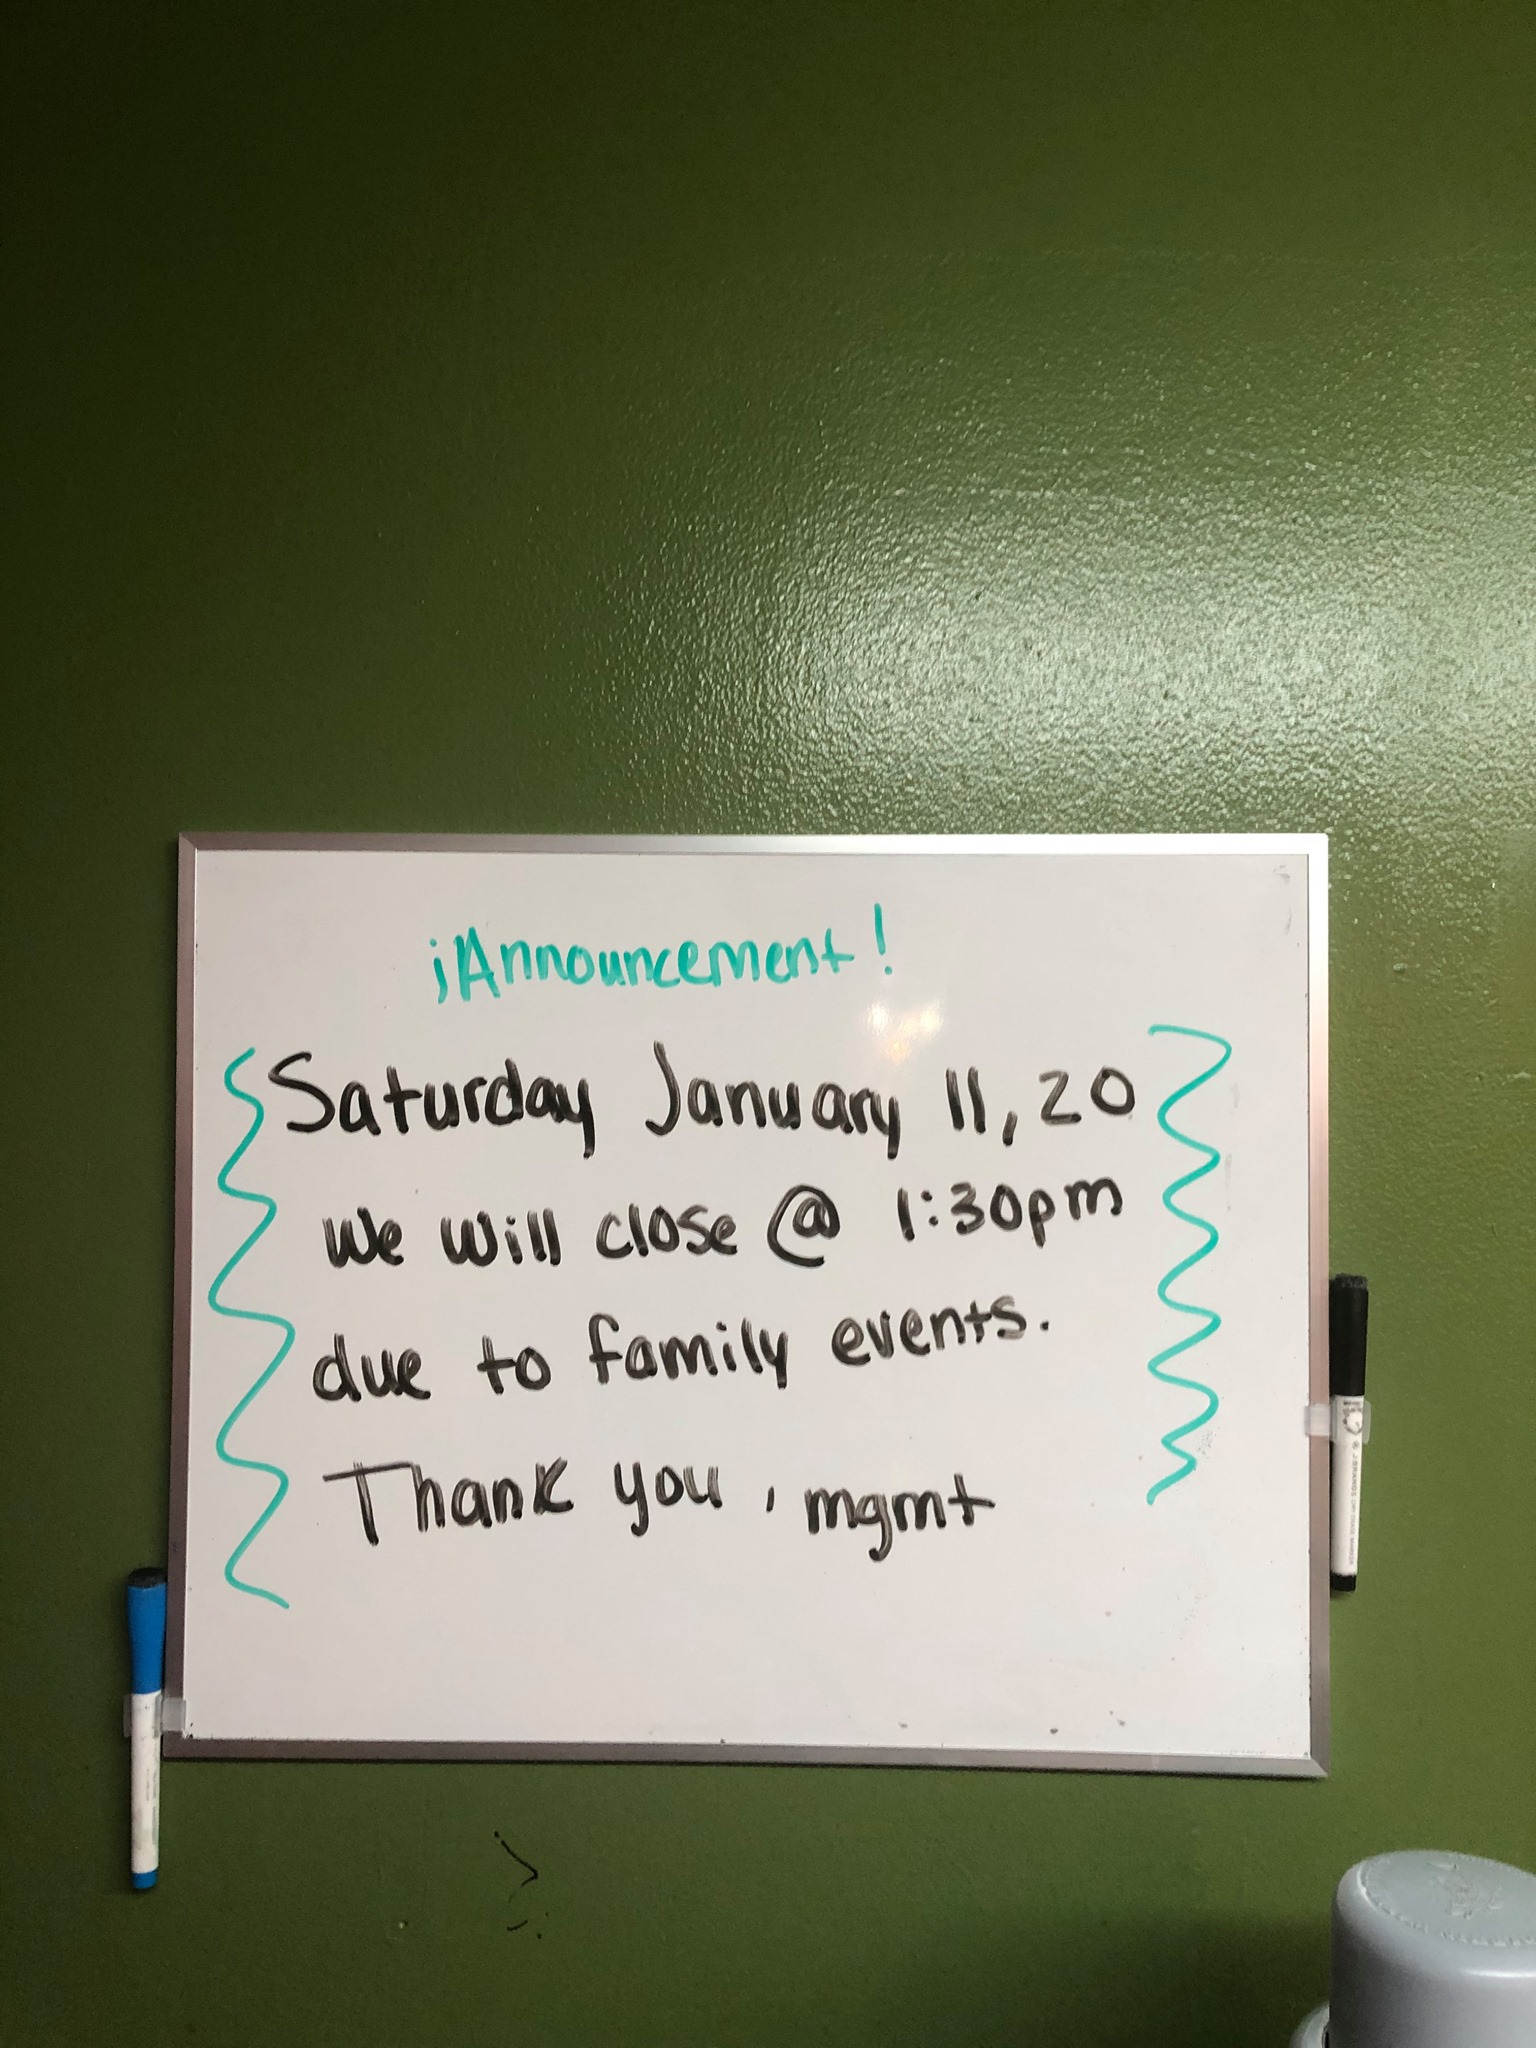 ¡Announcement!
Saturday January 11, 20
We will close @ 1:30pm
due to family events.
Thank you, mgmt